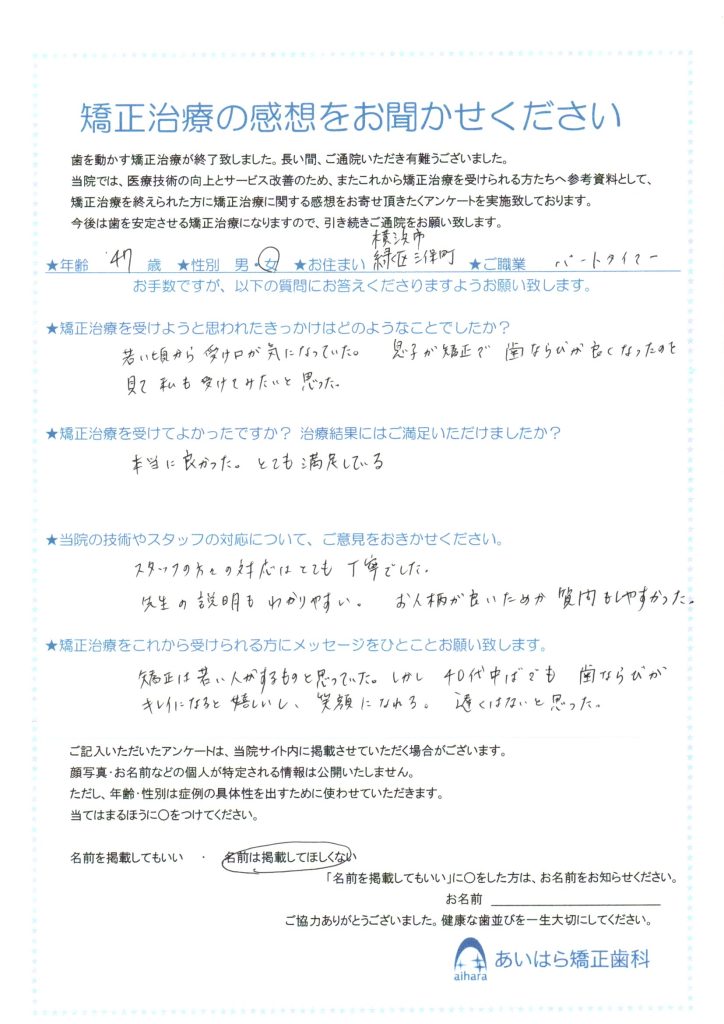 矯正治療の感想をお聞かせください
歯を動かす矯正治療が終了致しました。長い間、ご通院いただき有難うございました。
当院では、医療技術の向上とサービス改善のため、またこれから矯正治療を受けられる方たちへ参考資料として、
矯正治療を終えられた方に矯正治療に関する感想をお寄せ頂きたくアンケートを実施致しております。
今後は歯を安定させる矯正治療になりますので、引き続きご通院をお願い致します。
横浜市
★年齢 47 歳 ★性別 男・女 ★お住まい 緑区三保町 ★ご職業 パートタイマー
お手数ですが、以下の質問にお答えくださりますようお願い致します。
★矯正治療を受けようと思われたきっかけはどのようなことでしたか？
若い頃から受け口が気になっていた。 息子が矯正で歯ならびが良くなったのを
見て私も受けてみたいと思った。
★矯正治療を受けてよかったですか？ 治療結果にはご満足いただけましたか？
本当に良かった。とても満足している
★当院の技術やスタッフの対応について、ご意見をおきかせください。
スタッフの方々の対応はとても丁寧でした。
先生の説明もわかりやすい。 お人柄が良いためか質問もしやすかった。
★矯正治療をこれから受けられる方にメッセージをひとことお願い致します。
矯正は若い人がするものと思っていた。しかし40代中ばでも歯ならびが
キレイになると嬉しいし、笑顔になれる。遅くはないと思った。
ご記入いただいたアンケートは、当院サイト内に掲載させていただく場合がございます。
顔写真・お名前などの個人が特定される情報は公開いたしません。
ただし、年齢・性別は症例の具体性を出すために使わせていただきます。
当てはまるほうに〇をつけてください。
名前を掲載してもいい ・ 名前は掲載してほしくない
「名前を掲載してもいい」に〇をした方は、お名前をお知らせください。
お名前
ご協力ありがとうございました。健康な歯並びを一生大切にしてください。
aihara あいはら矯正歯科